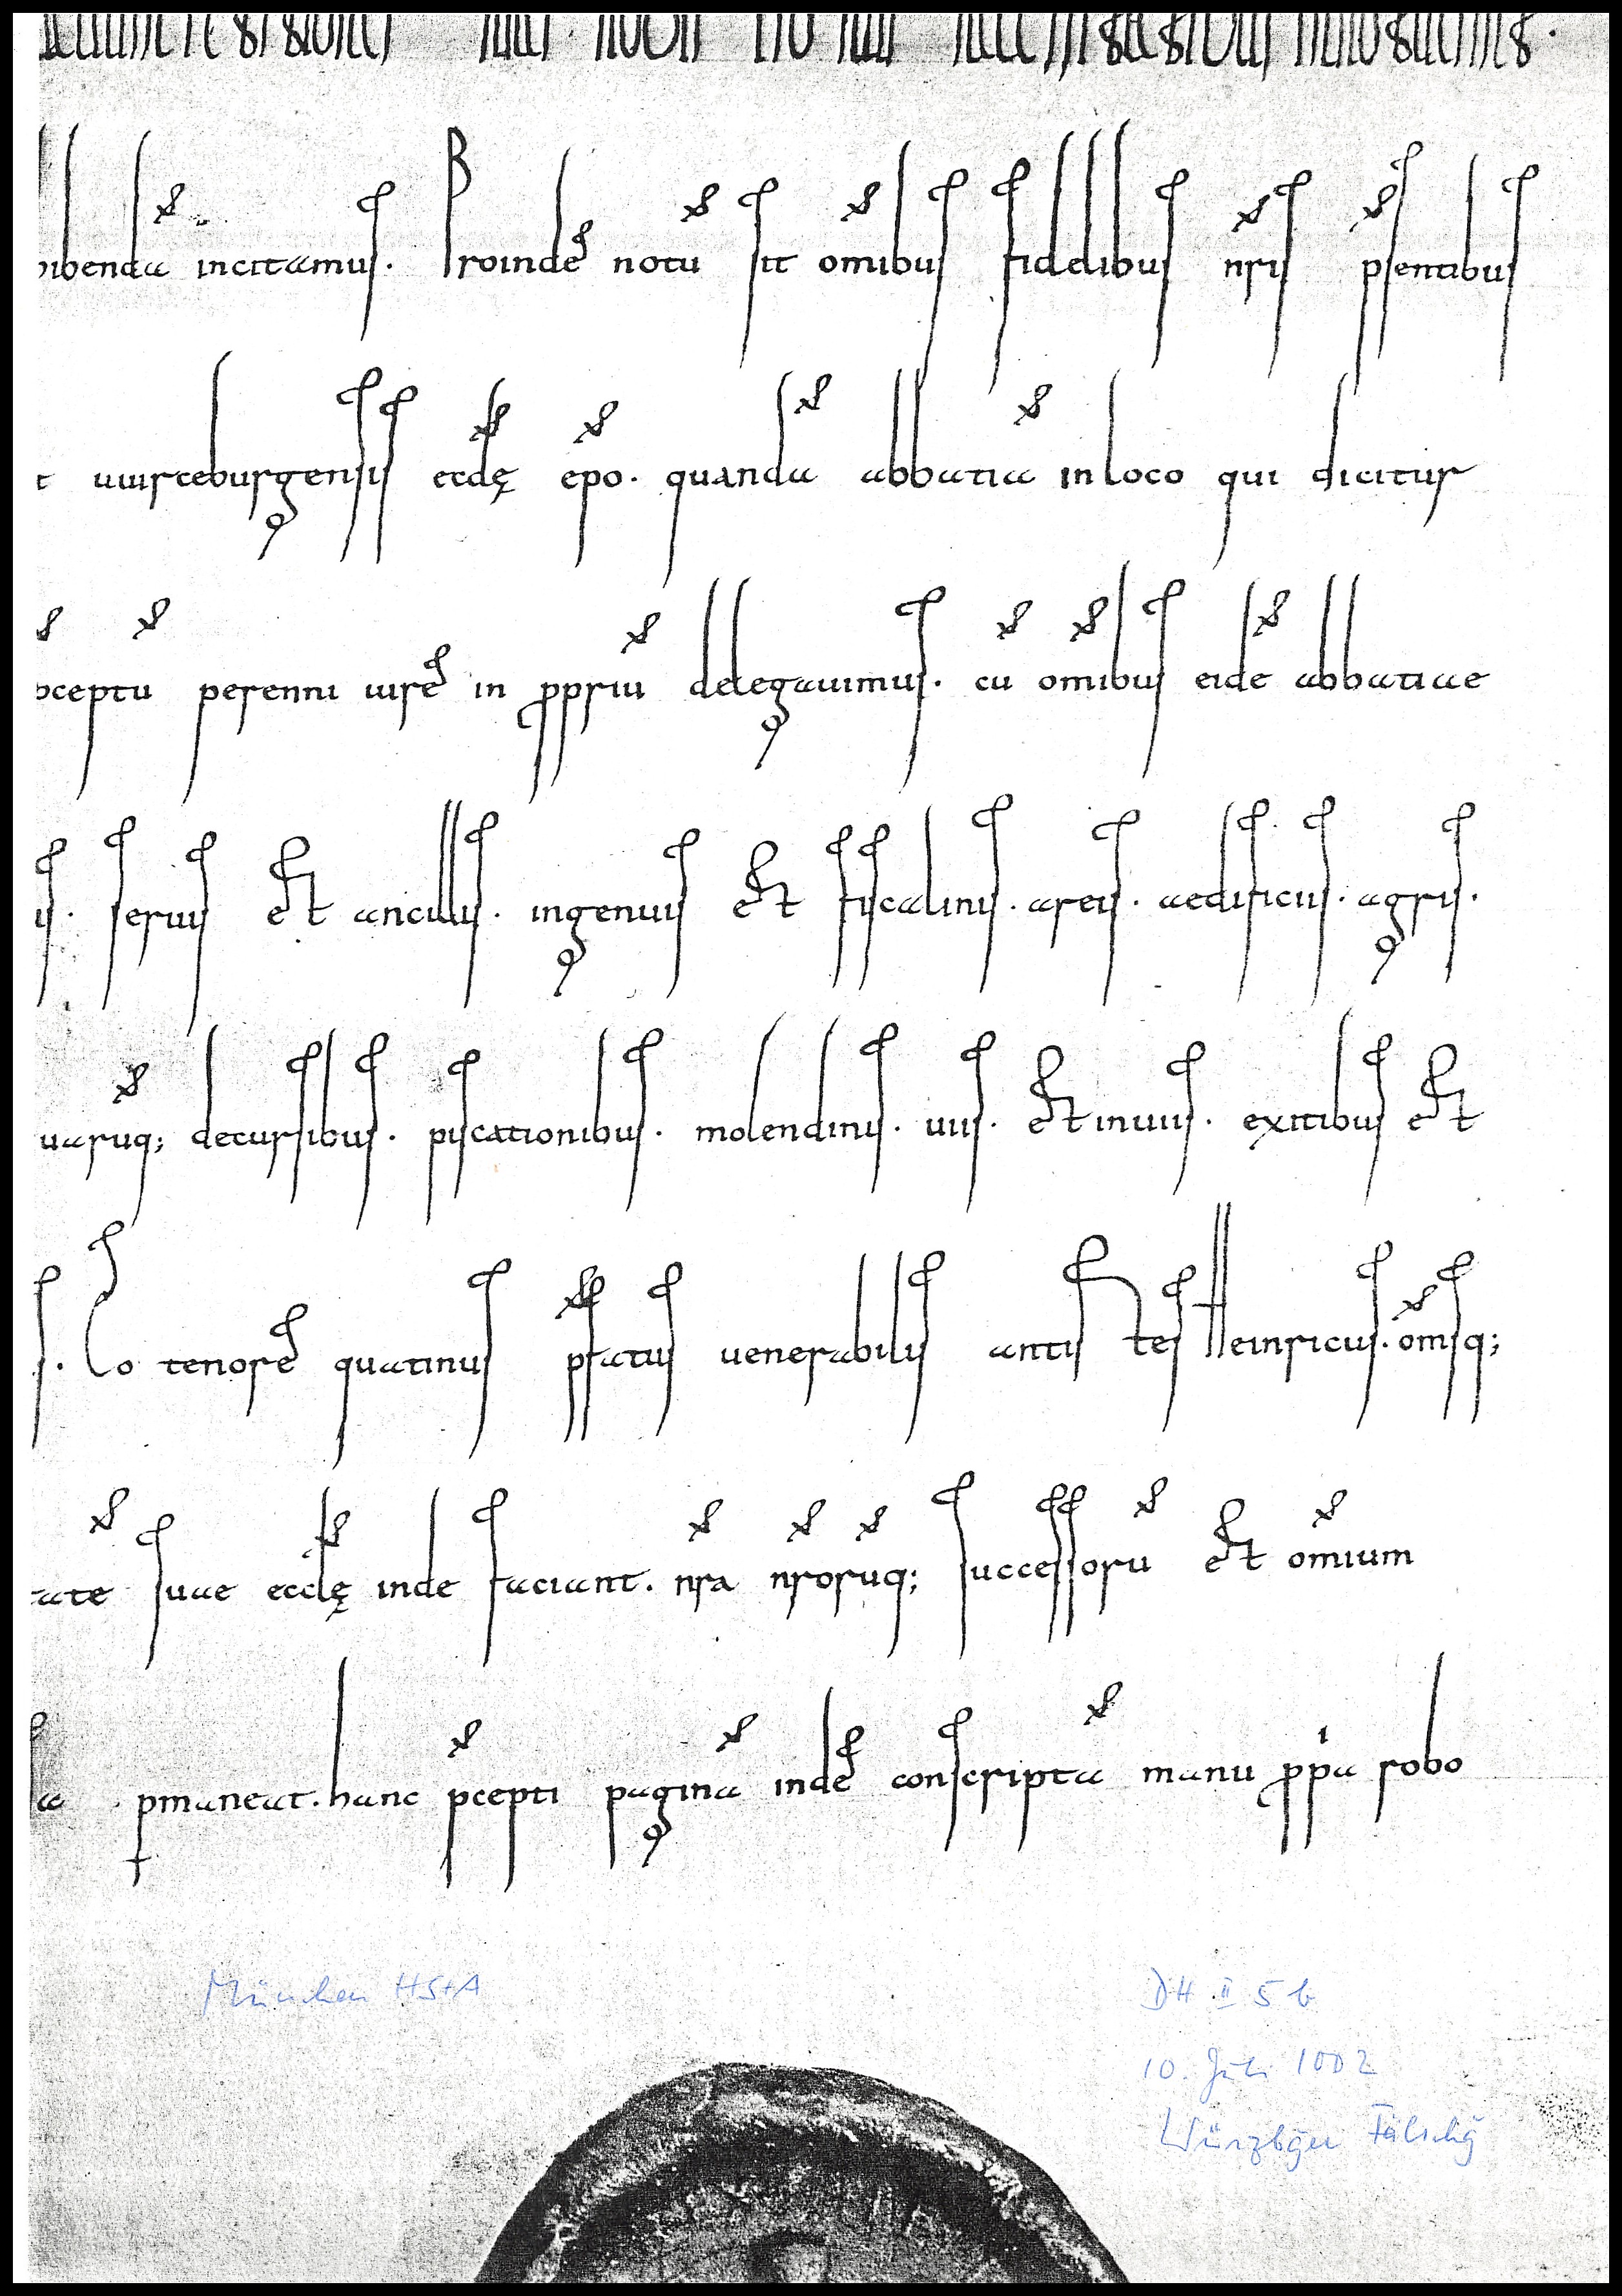 incitamus. Proinde notū sit om̄ibus fidelibus nr̄is p̄sentibus
uuirceburgensis eccl̄ę ep̄o. quandā abbatiā in loco qui dicitur
perenni iure in ꝓpriū delegauimus. cū om̄ibus eidē abbatiae
seruis et ancillis. ingenuis et fiscalinis. areis. aedificiis. agris.
decursibus. piscationibus. molendinis. uiis et inuiis. exitibus et
Eo tenore quatinus p̄fatus uenerabilis antistes Heinricus. om̄sq;
suae eccl̄ę inde faciant. nr̄a nr̄orūq; successorū et om̄ium
ꝑmaneat. hanc p̄cepti paginā inde conscriptā manu ꝓpͥa robo
München HStA
DH II 5 b
10. Juli 1002
Würzbger Fälschg